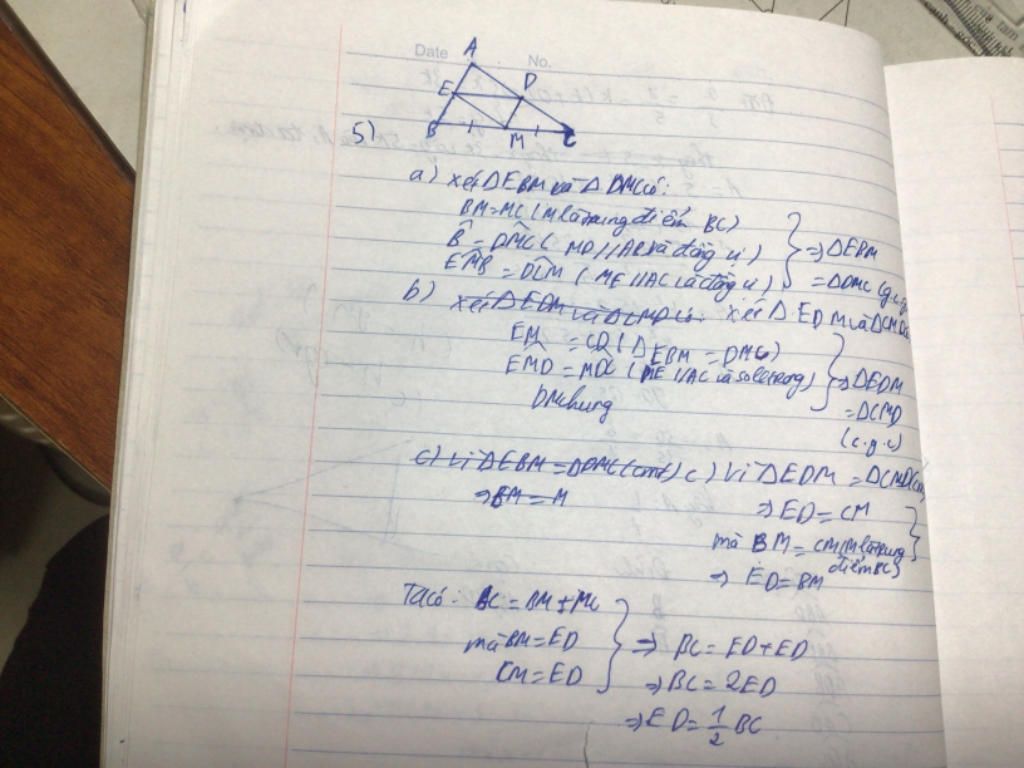 Date No.
A
E D
B M C
5)
a) xét ΔEBM và ΔDMC có:
BM=MC (M là trung điểm BC)
B̂ = DM̂C ( MD//AB và đồng vị ) } ⇒ ΔEBM
EM̂B = DĈM ( ME//AC và đồng vị ) = ΔDMC (g.c.g)
b) xét ΔEDM và ΔCMD có: xét Δ EDM và ΔCMD có
EM = CD ( ΔEBM = DMC)
EM̂D = MD̂C ( ME//AC và so le trong) } ⇒ ΔEDM
DM chung = ΔCMD
(c.g.c)
c) Vì ΔEBM = ΔDMC (cmt) c) Vì ΔEDM = ΔCMD(cmt)
⇒ BM = M ⇒ ED = CM
mà BM = CM(M là trung
điểm BC)
⇒ ED = BM
Ta có: BC = BM + MC
mà BM = ED } ⇒ BC = ED + ED
CM = ED ⇒ BC = 2ED
⇒ ED = 1/2 BC